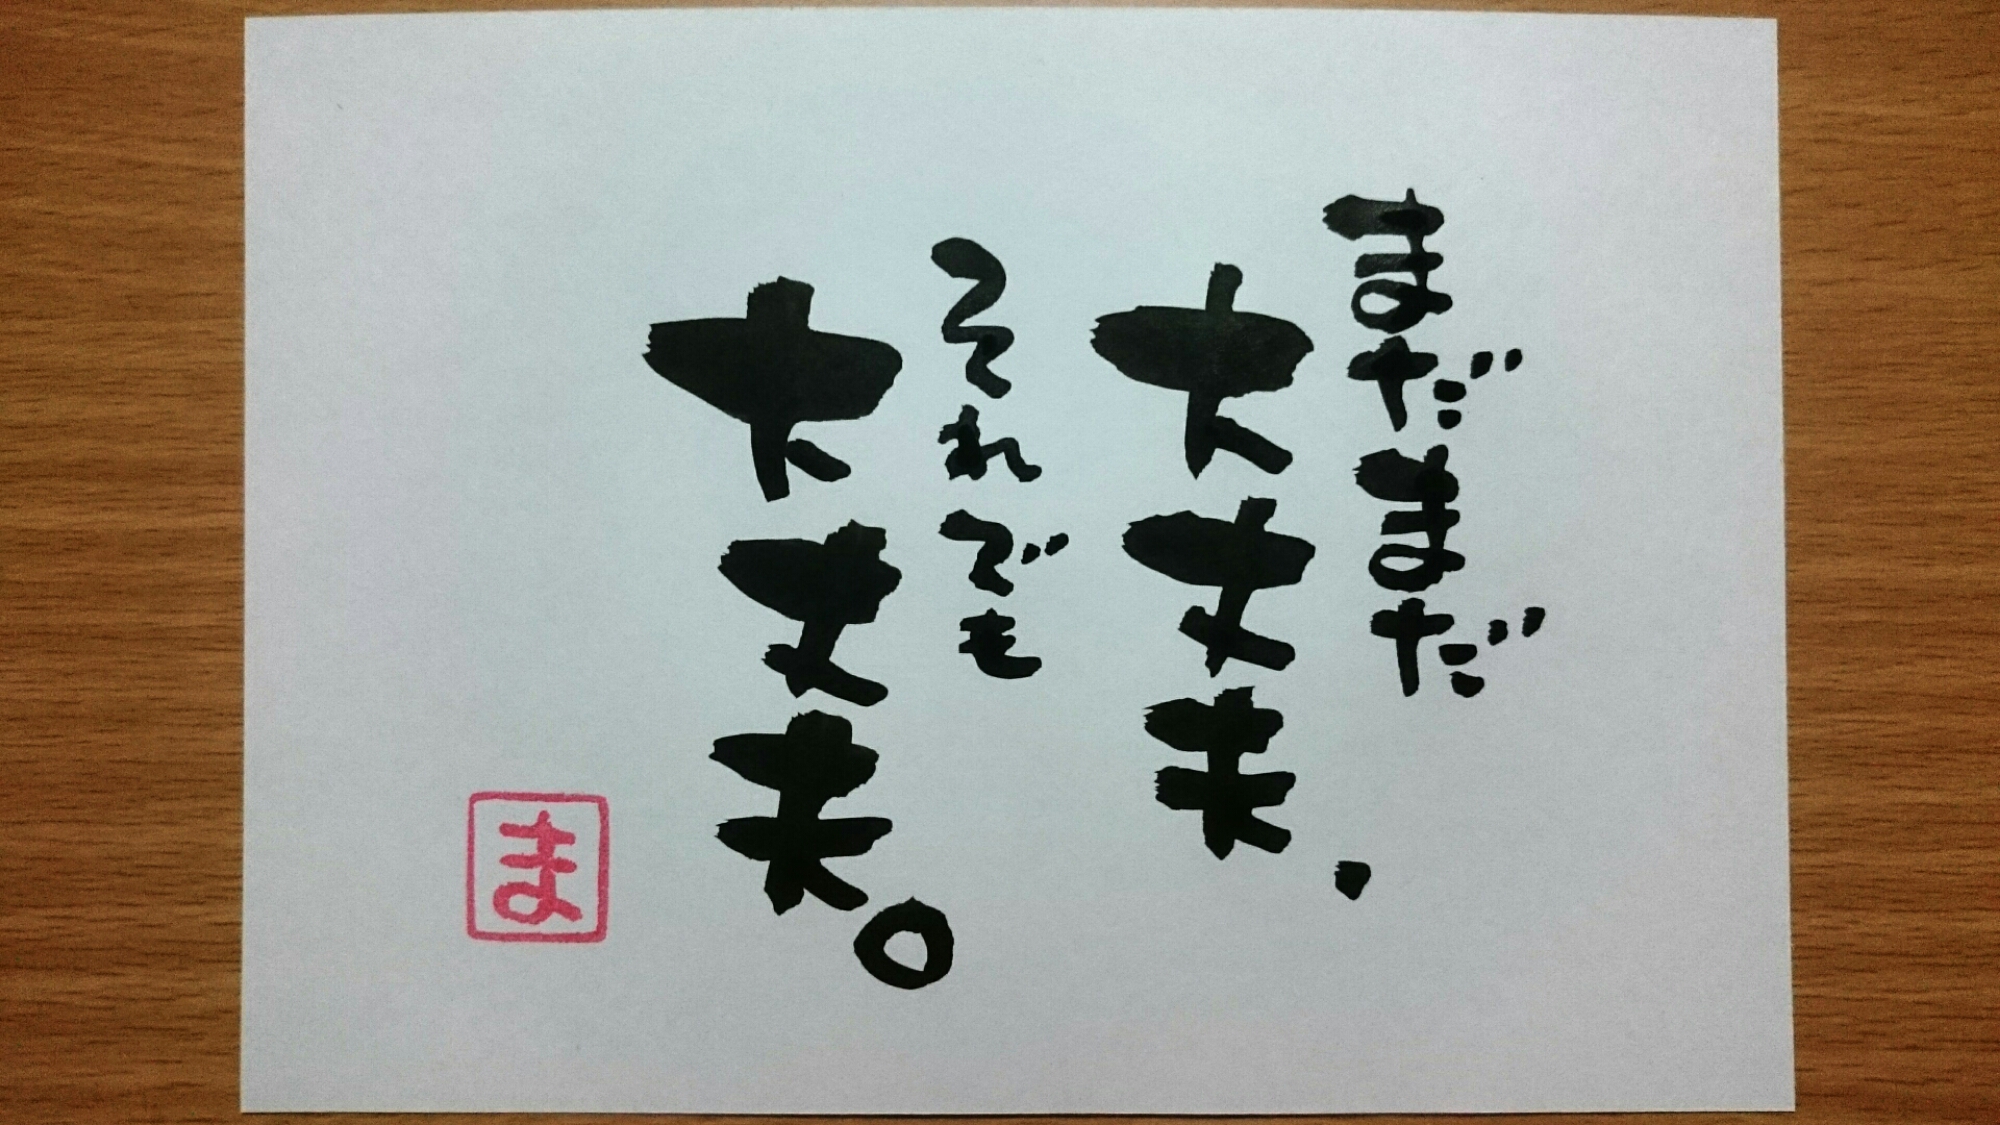 まだまだ
大丈夫、
それでも
大丈夫。
ま